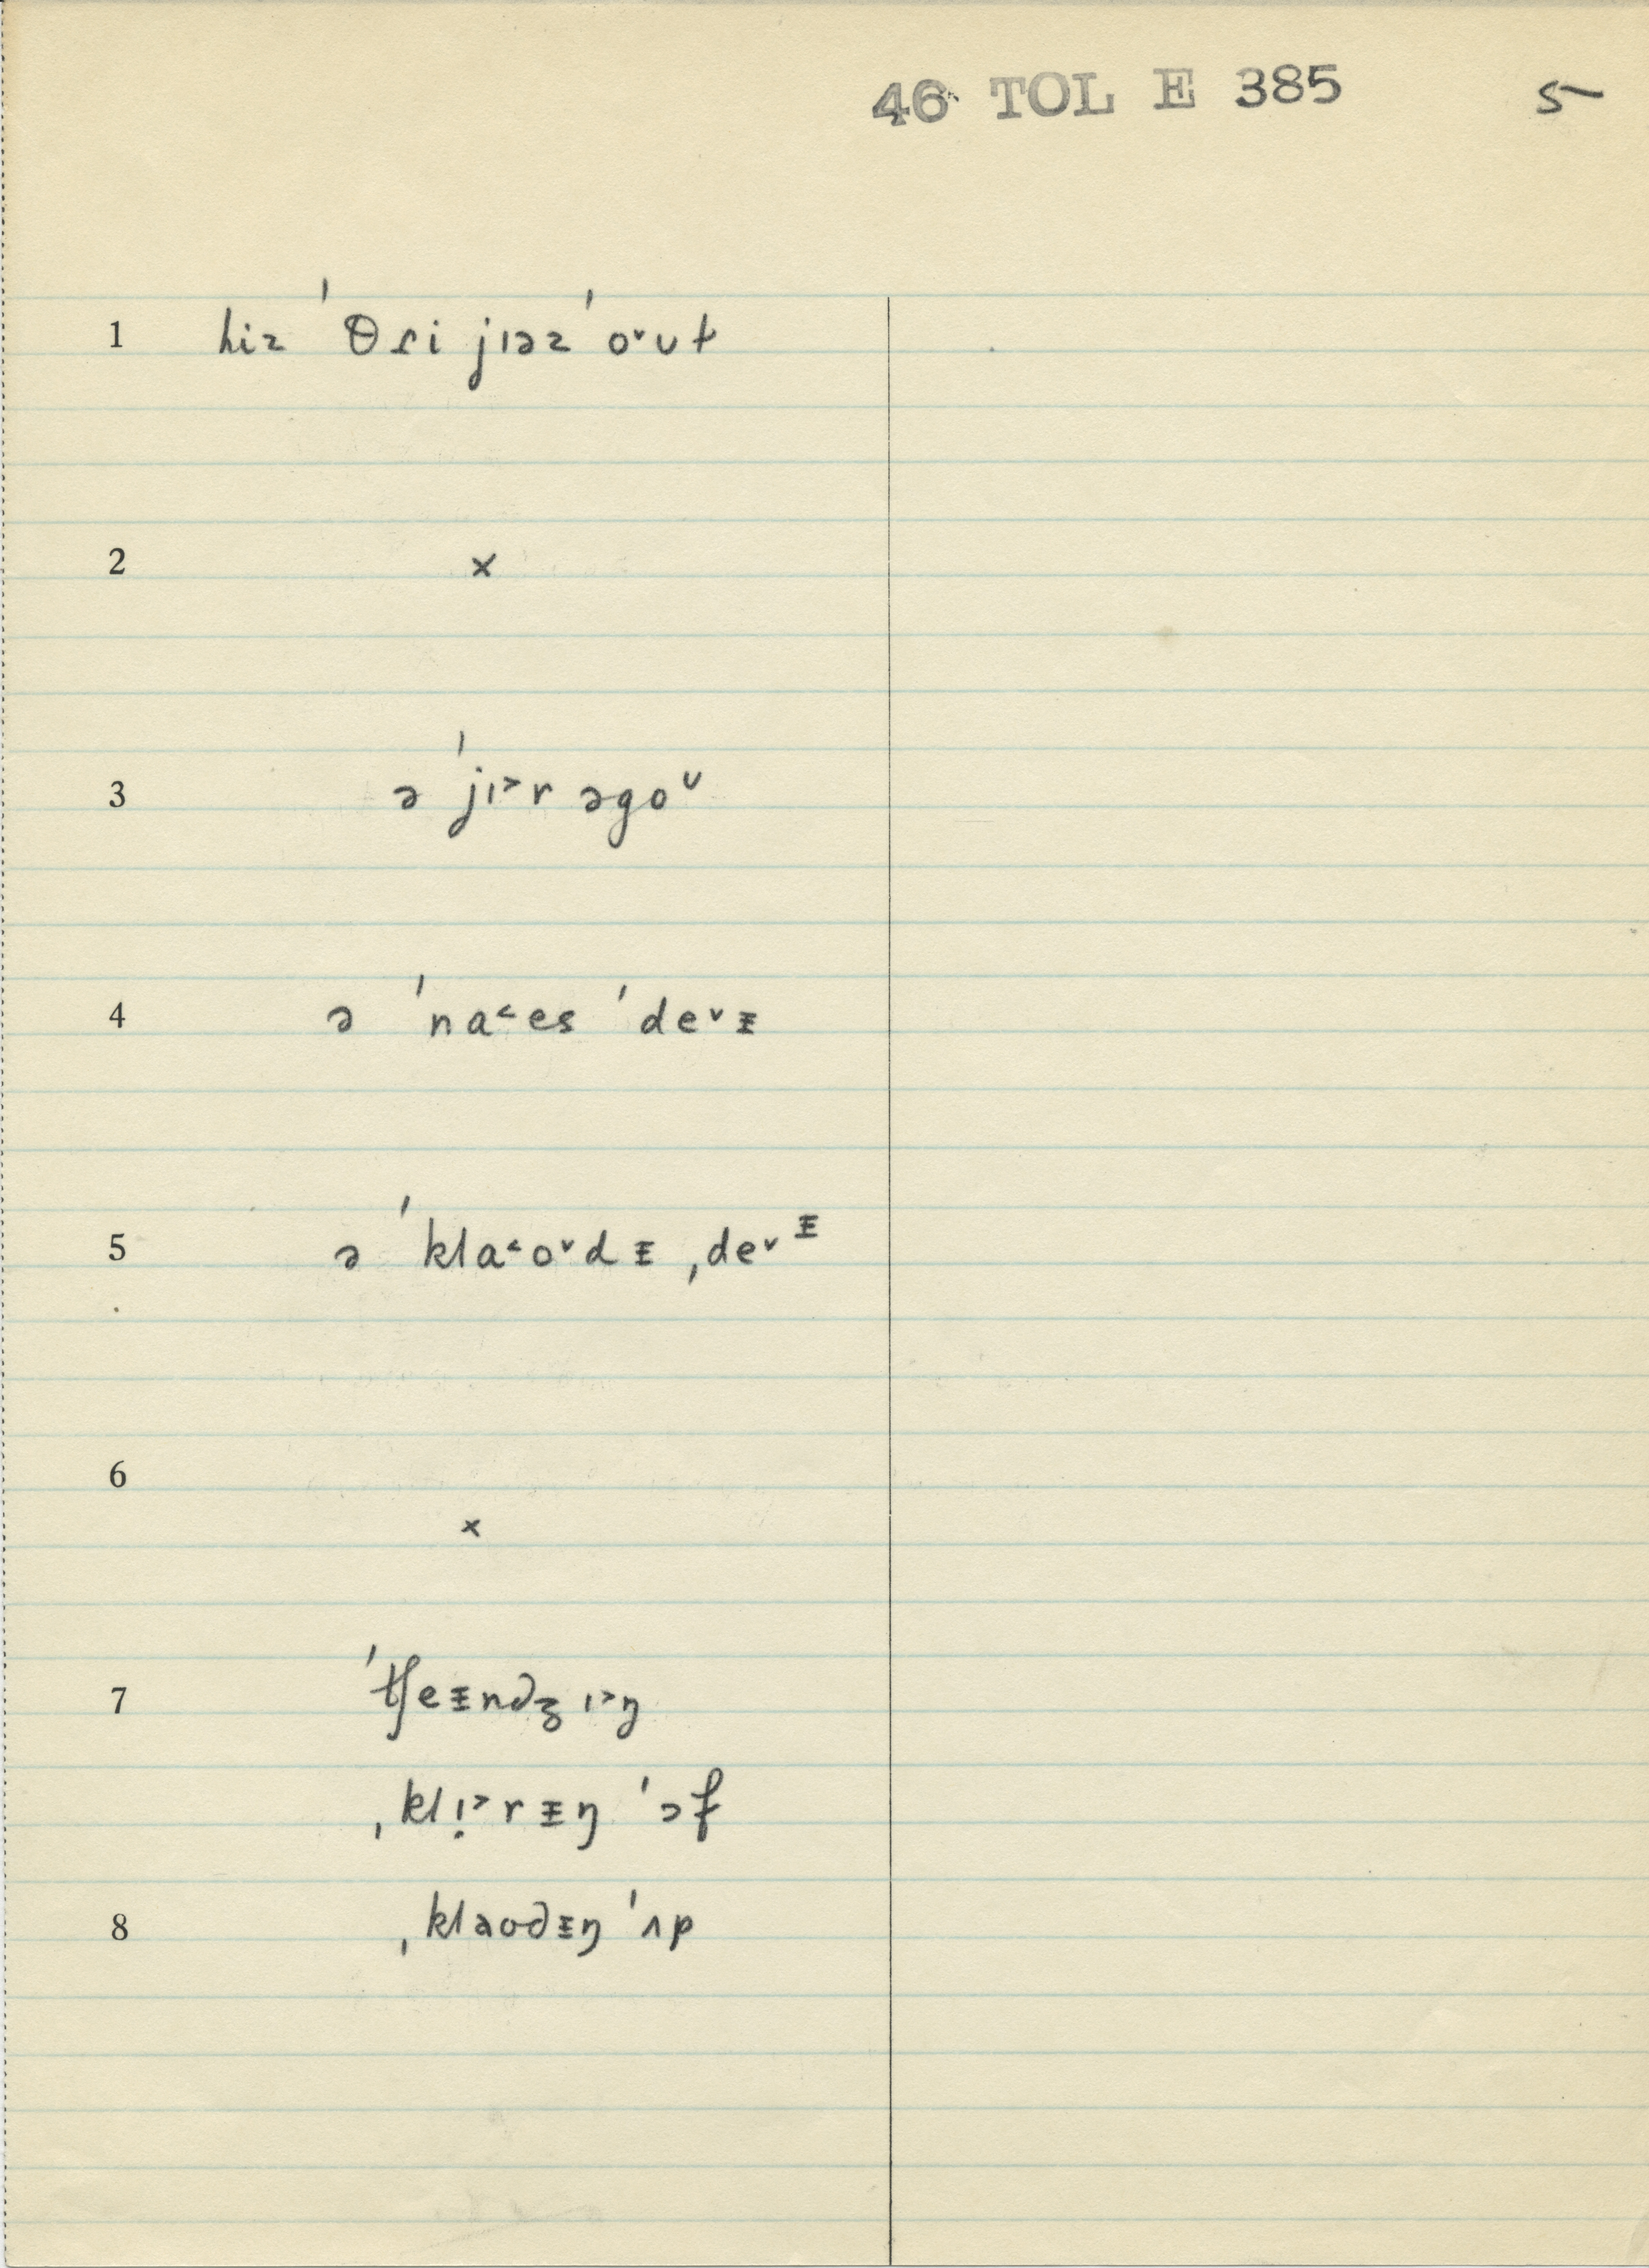 46 TOL E 385 5
1 hiz ˈθɾi jɪəz ˈo˅ut
2 x
3 ə ˈjɪ˃r əgoᵛ
4 ə ˈna˂es ˈde˅ᵻ
5 ə ˈkla˂o˅dᵻ ˌde˅ᵻ
6
x
7 ˈtʃeᵻndʒɪ˃ŋ
ˌklɪ̣˃rᵻŋ ˈɔf
8 ˌklaʊdᵻŋ ˈʌp